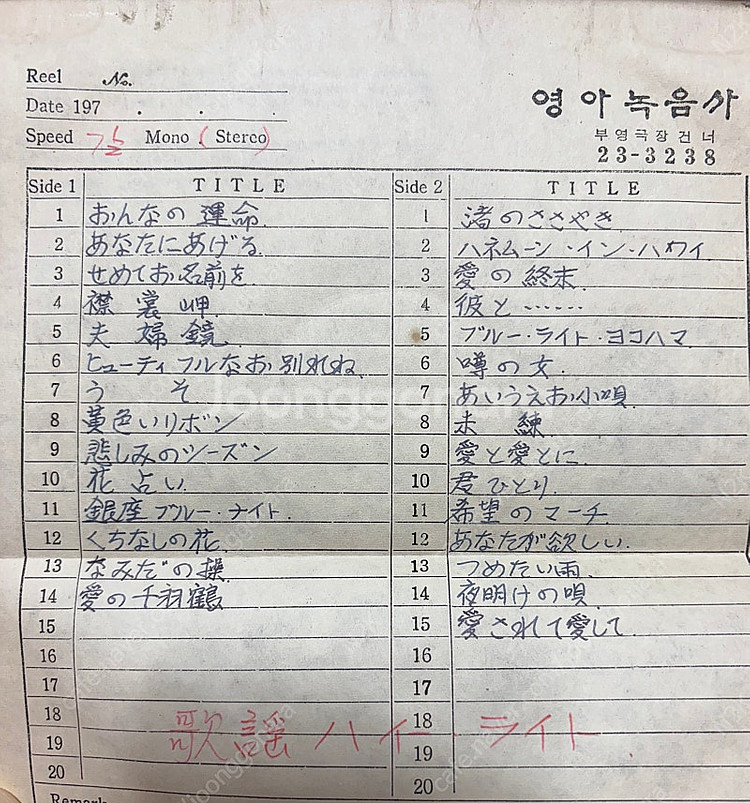 Reel No.
Date 197 . . .
Speed 7½ Mono (Stereo)
영아녹음사
부영극장건너
23-3238
Side 1 TITLE
1 おんなの 運命.
2 あなたにあげる.
3 せめてお名前を.
4 襟裳岬.
5 夫婦鏡.
6 ヒューティフルなお別れね.
7 うそ
8 黄色いリボン
9 悲しみのツーズン
10 花占い.
11 銀座ブルー・ナイト.
12 くちなしの花.
13 なみだの操.
14 愛の千羽鶴
15
16
17
18
19
20
Side 2 TITLE
1 渚のささやき
2 ハネムーン・イン・ハワイ
3 愛の終末.
4 彼と……
5 ブルー・ライト・ヨコハマ
6 噂の女.
7 あいうえお小唄.
8 未練.
9 愛と愛とに.
10 君ひとり.
11 希望のマーチ.
12 あなたが欲しい.
13 つめたい雨.
14 夜明けの唄.
15 愛されて愛して.
16
17
18
19
20
歌謡ハイ・ライト
Remark